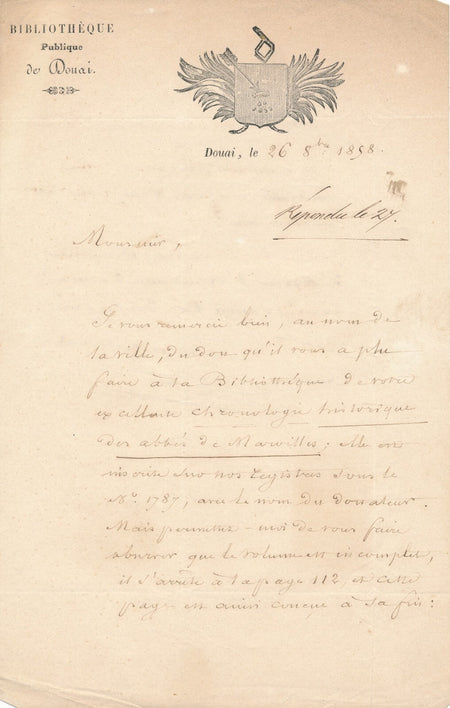 BIBLIOTHÈQUE
Publique
de Douai.
Douai, le 26 8bre 1858.
Répondu le 27.
Monsieur,
Je vous remercie bien, au nom de
la ville, du don qu'il vous a plu
faire à la Bibliothèque de votre
excellente chronologie historique
des abbés de Marvilles; elle est
inscrite sur nos registres sous le
No. 1787, avec le nom du donateur.
Mais permettez-moi de vous faire
observer que le volume est incomplet,
il s'arrête à la page 112, et cette
page est ainsi conçue à sa fin: